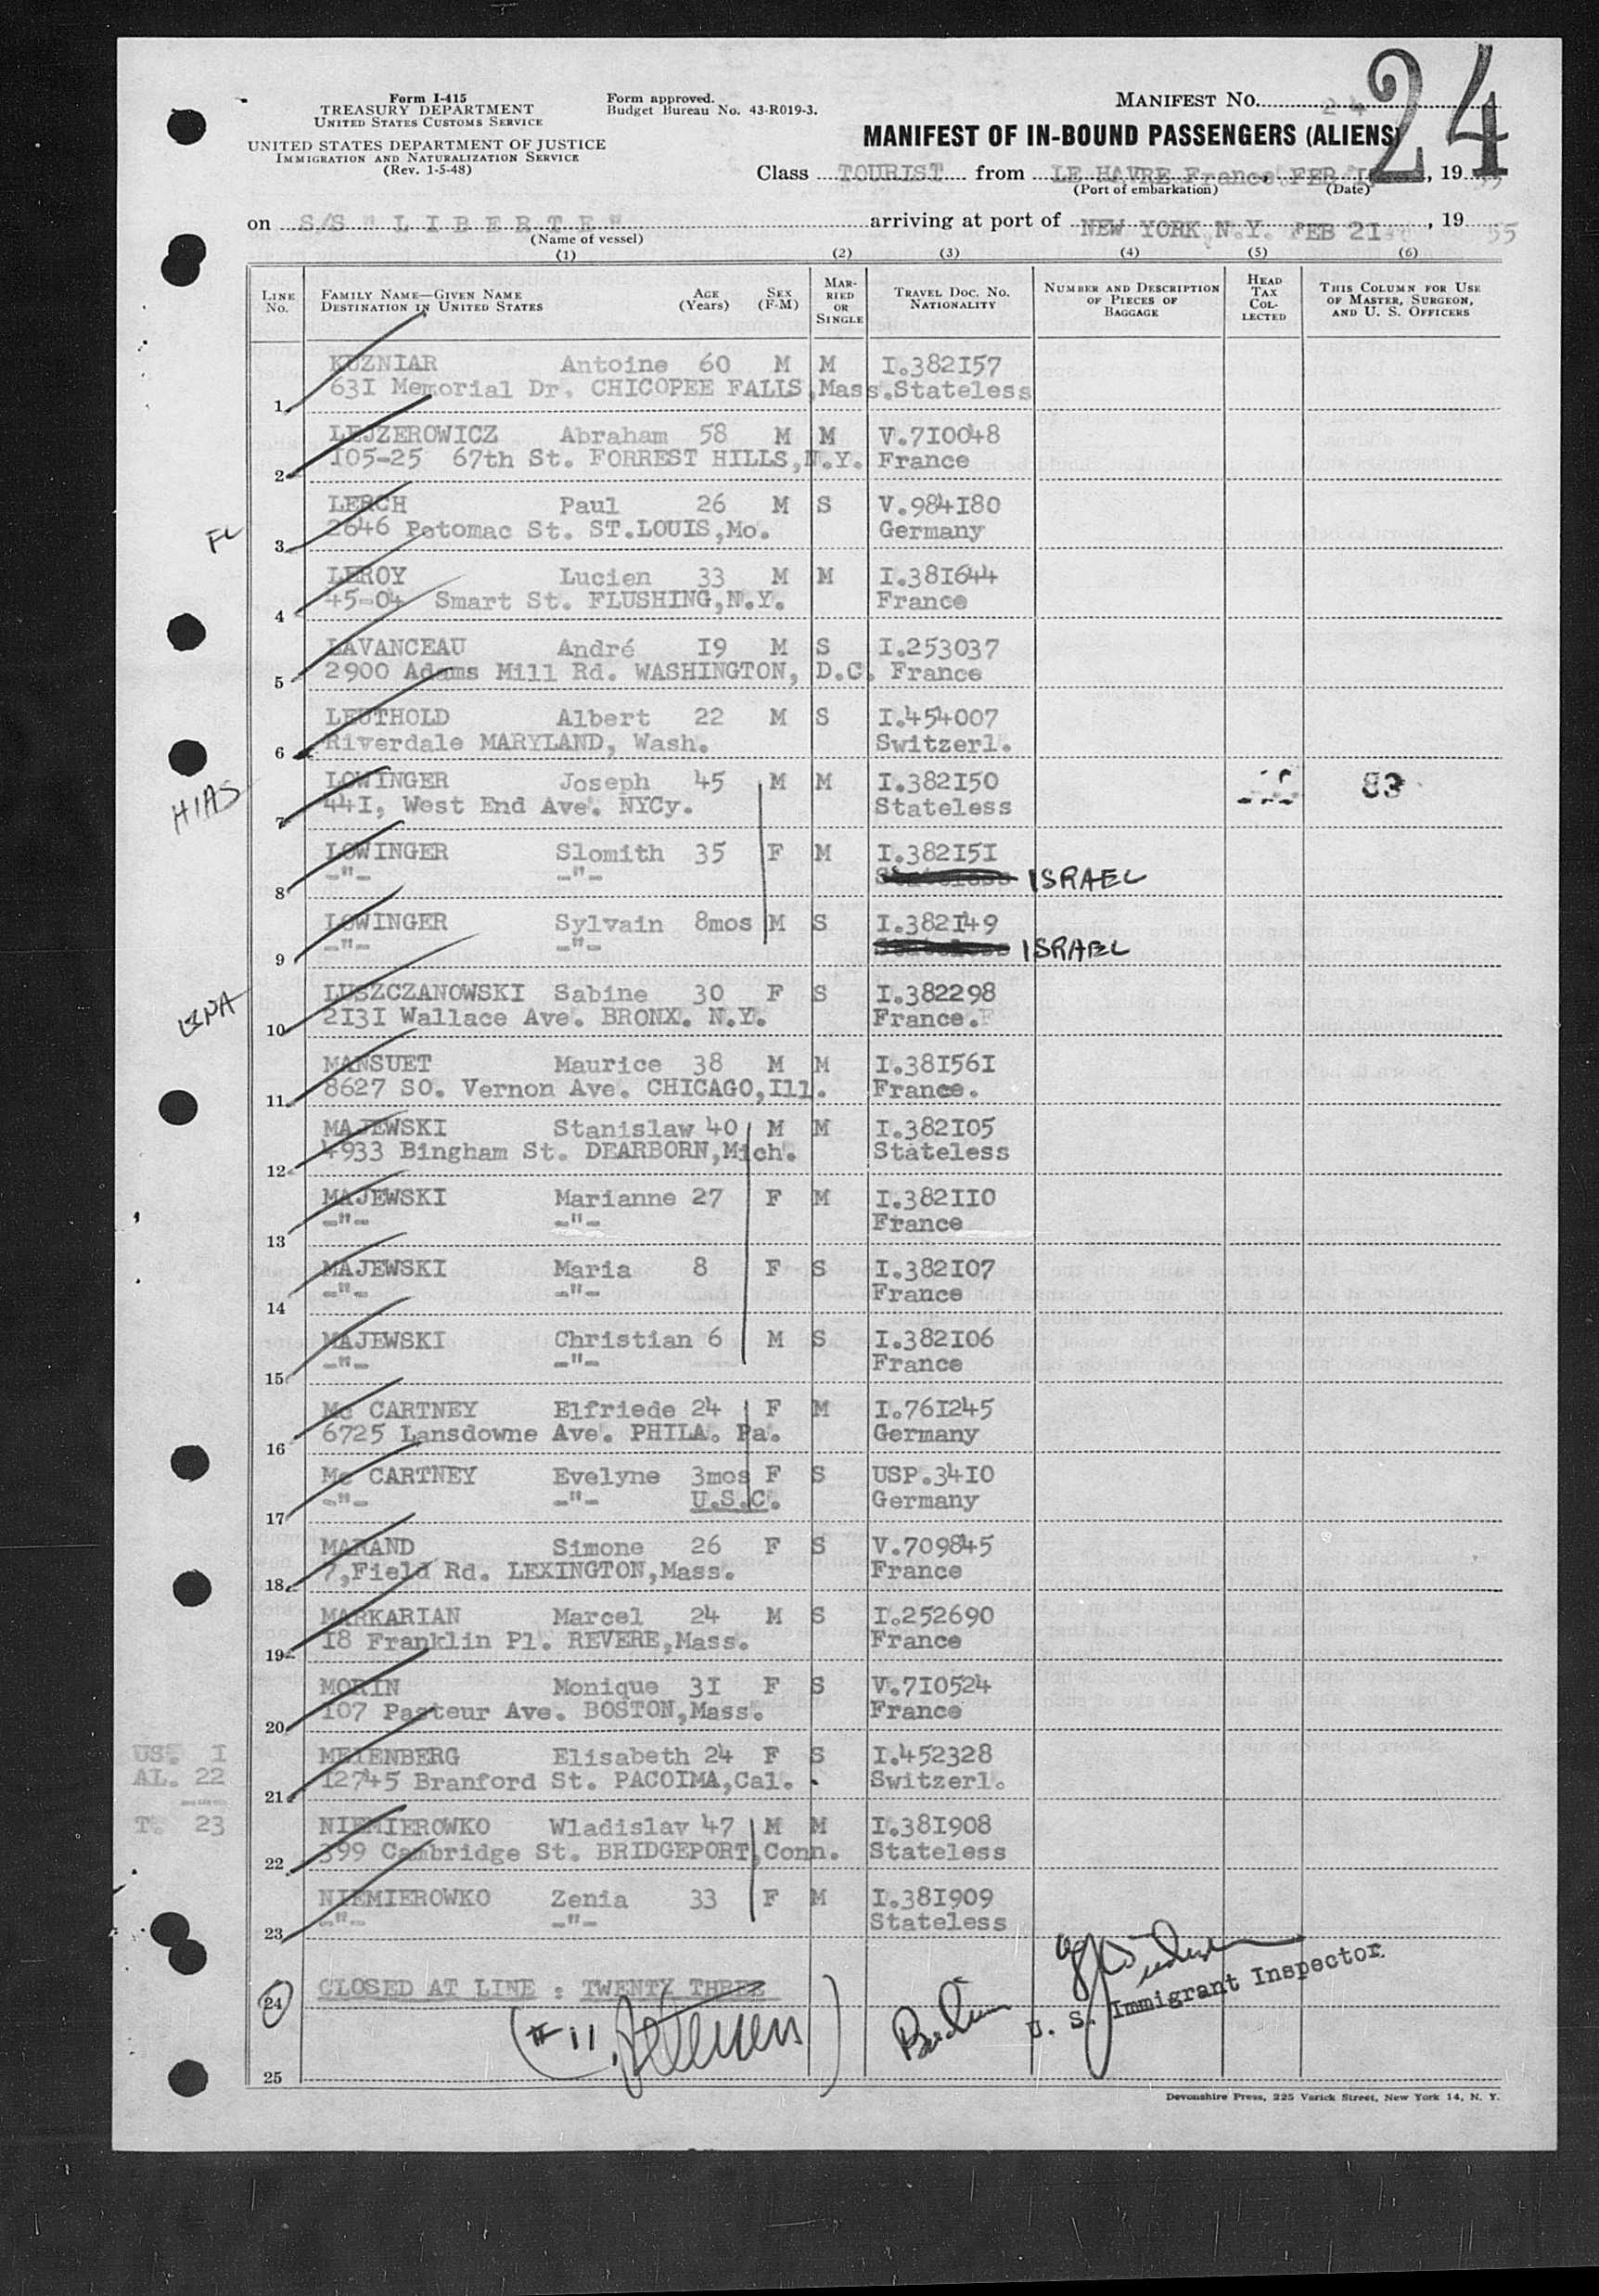 Form I-415
TREASURY DEPARTMENT
UNITED STATES CUSTOMS SERVICE
UNITED STATES DEPARTMENT OF JUSTICE
IMMIGRATION AND NATURALIZATION SERVICE
(Rev. 1-5-48)
Form approved.
Budget Bureau No. 43-R019-3.
MANIFEST NO. 24
24
MANIFEST OF IN-BOUND PASSENGERS (ALIENS)
Class TOURIST from LE HAVRE France, FEB , 19 55
(Port of embarkation) (Date)
on S/S " L I B E R T E " arriving at port of NEW YORK N.Y. FEB 21 , 19 55
(Name of vessel)
(1) (2) (3) (4) (5) (6)
LINE No. FAMILY NAME—GIVEN NAME DESTINATION IN UNITED STATES AGE (Years) SEX (F-M) MARRIED OR SINGLE TRAVEL DOC. NO. NATIONALITY NUMBER AND DESCRIPTION OF PIECES OF BAGGAGE HEAD TAX COLLECTED THIS COLUMN FOR USE OF MASTER, SURGEON, AND U. S. OFFICERS
KUZNIAR Antoine 60 M M I.382157
1 631 Memorial Dr. CHICOPEE FALLS,Mass.Stateless
LEJZEROWICZ Abraham 58 M M V.710048
2 105-25 67th St. FORREST HILLS,N.Y. France
LERCH Paul 26 M S V.984180
3 2646 Potomac St. ST.LOUIS,Mo. Germany
LEROY Lucien 33 M M I.381644
4 45-04 Smart St. FLUSHING,N.Y. France
LAVANCEAU André 19 M S I.253037
5 2900 Adams Mill Rd. WASHINGTON, D.C. France
LEUTHOLD Albert 22 M S I.454007
6 Riverdale MARYLAND, Wash. Switzerl.
HIAS
LOWINGER Joseph 45 M M I.382150 83
7 441, West End Ave. NYCy. Stateless
LOWINGER Slomith 35 F M I.382151
8 -"- -"- Stateless ISRAEL
LOWINGER Sylvain 8mos M S I.382149
9 -"- -"- Stateless ISRAEL
LUSZCZANOWSKI Sabine 30 F S I.382298
10 2131 Wallace Ave. BRONX. N.Y. France.
MANSUET Maurice 38 M M I.381561
11 8627 SO. Vernon Ave. CHICAGO,Ill. France.
MAJEWSKI Stanislaw 40 M M I.382105
12 4933 Bingham St. DEARBORN,Mich. Stateless
MAJEWSKI Marianne 27 F M I.382110
13 -"- -"- France
MAJEWSKI Maria 8 F S I.382107
14 -"- -"- France
MAJEWSKI Christian 6 M S I.382106
15 -"- -"- France
Mc CARTNEY Elfriede 24 F M I.761245
16 6725 Lansdowne Ave. PHILA. Pa. Germany
Mc CARTNEY Evelyne 3mos F S USP.3410
17 -"- -"- U.S.C. Germany
MARAND Simone 26 F S V.709845
18 7,Field Rd. LEXINGTON,Mass. France
MARKARIAN Marcel 24 M S I.252690
19 18 Franklin Pl. REVERE,Mass. France
MORIN Monique 31 F S V.710524
20 107 Pasteur Ave. BOSTON,Mass. France
US. 1
AL. 22
T. 23
MEIENBERG Elisabeth 24 F S I.452328
21 12745 Branford St. PACOIMA,Cal. Switzerl.
NIEMIEROWKO Wladislav 47 M M I.381908
22 399 Cambridge St. BRIDGEPORT,Conn. Stateless
NIEMIEROWKO Zenia 33 F M I.381909
23 -"- -"- Stateless
24 CLOSED AT LINE : TWENTY THREE
U. S. Immigrant Inspector
25
Devonshire Press, 225 Varick Street, New York 14, N. Y.